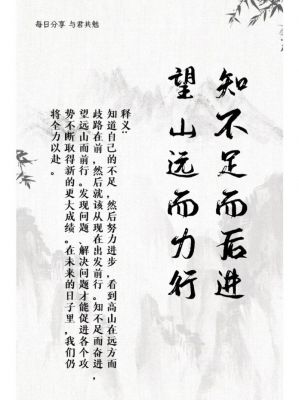 每日分享 与君共勉
知不足而后进
望山远而力行
释义：
知道自己的不足，然后努力进步，看到高山在远方而
歧路在前，然后就该从现在出发前行。知不足而奋进，
望远山而前行。发现问题、解决问题才能促进各个攻
势不断取得新的更大成绩。在未来的日子里，我们仍
将全力以赴。